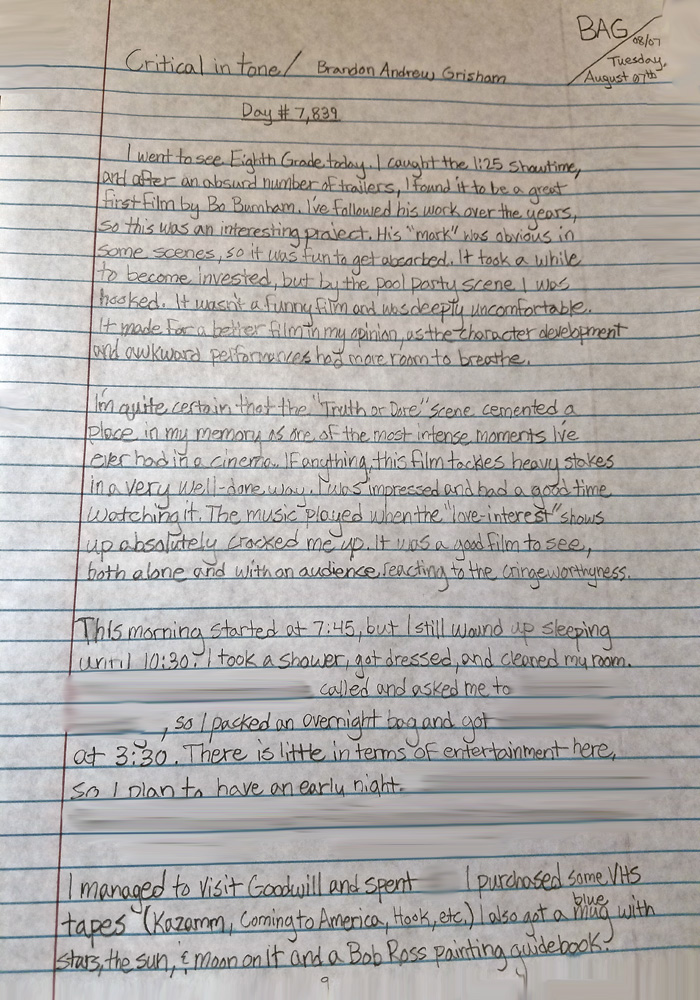 BAG
08/07
Tuesday,
August 07th
Critical in tone/ Brandon Andrew Grisham
Day # 7,839
I went to see Eighth Grade today. I caught the 1:25 showtime,
and after an absurd number of trailers, I found it to be a great
first film by Bo Burnham. I've followed his work over the years,
so this was an interesting project. His "mark" was obvious in
some scenes, so it was fun to get absorbed. It took a while
to become invested, but by the pool party scene I was
hooked. It wasn't a funny film and was deeply uncomfortable.
It made for a better film in my opinion, as the character development
and awkward performances had more room to breathe.
I'm quite certain that the "Truth or Dare" scene cemented a
place in my memory as one of the most intense moments I've
ever had in a cinema. If anything, this film tackles heavy stakes
in a very well-done way. I was impressed and had a good time
watching it. The music played when the "love-interest" shows
up absolutely cracked me up. It was a good film to see,
both alone and with an audience reacting to the cringeworthyness.
This morning started at 7:45, but I still wound up sleeping
until 10:30. I took a shower, got dressed, and cleaned my room.
called and asked me to
, so I packed an overnight bag and got
at 3:30. There is little in terms of entertainment here,
so I plan to have an early night.
I managed to visit Goodwill and spent I purchased some VHS
tapes (Kazamm, Coming to America, Hook, etc.) I also got a blue mug with
stars, the sun, & moon on it and a Bob Ross painting guidebook.
9